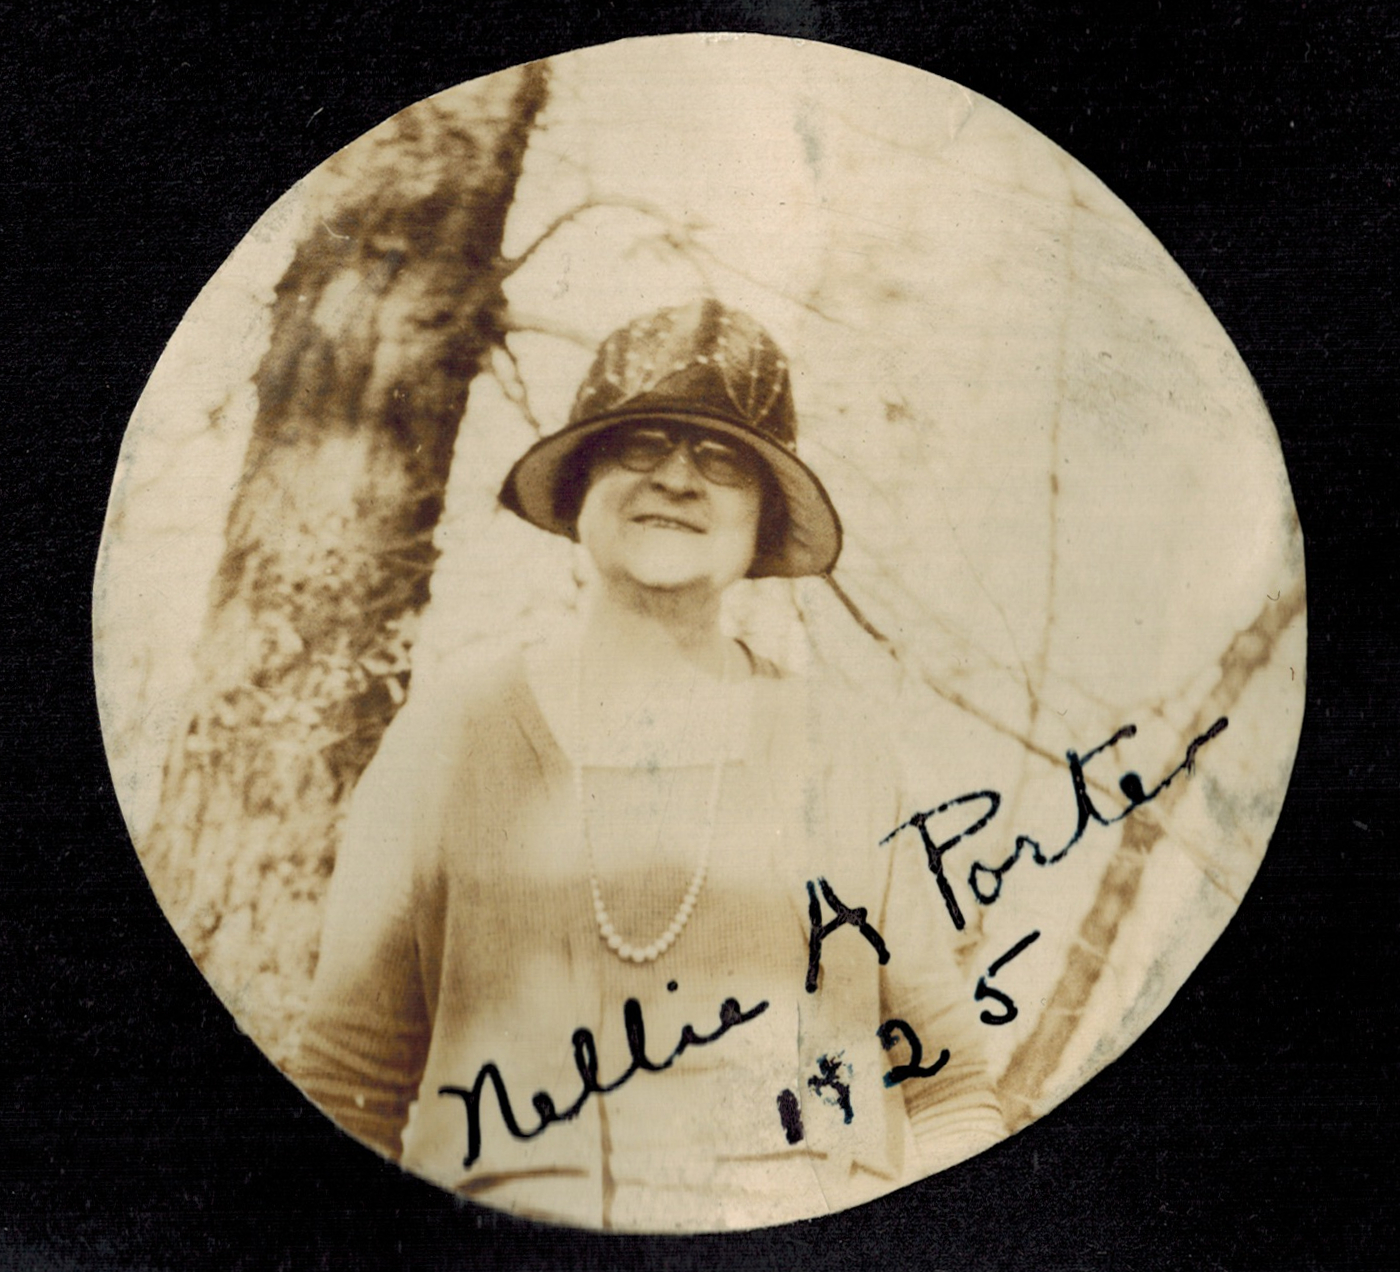 Nellie A Porter
1925